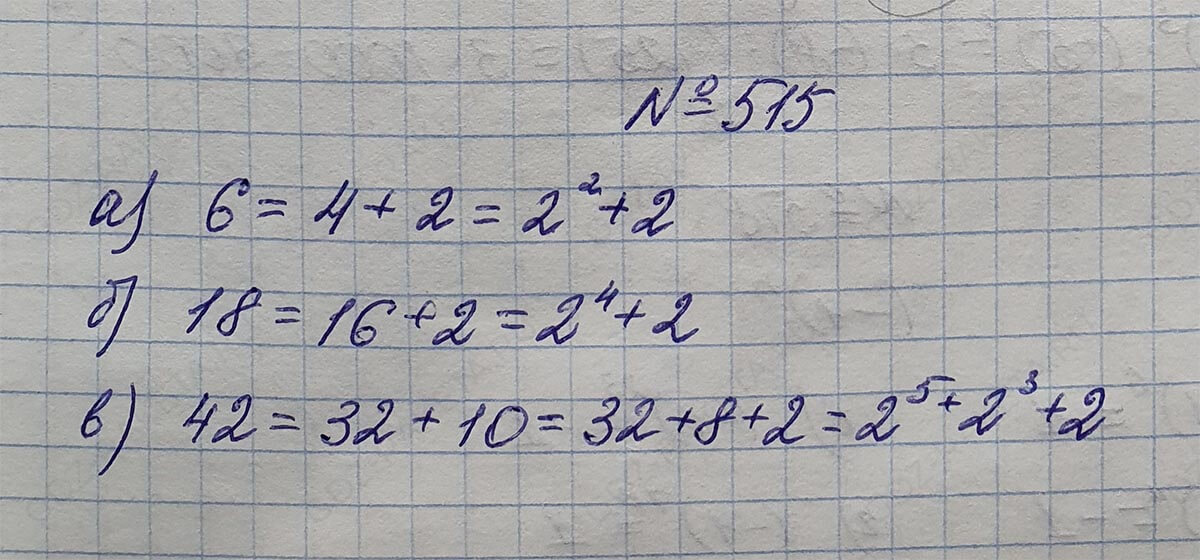 №515
а) 6 = 4 + 2 = 2² + 2
б) 18 = 16 + 2 = 2⁴ + 2
в) 42 = 32 + 10 = 32 + 8 + 2 = 2⁵ + 2³ + 2